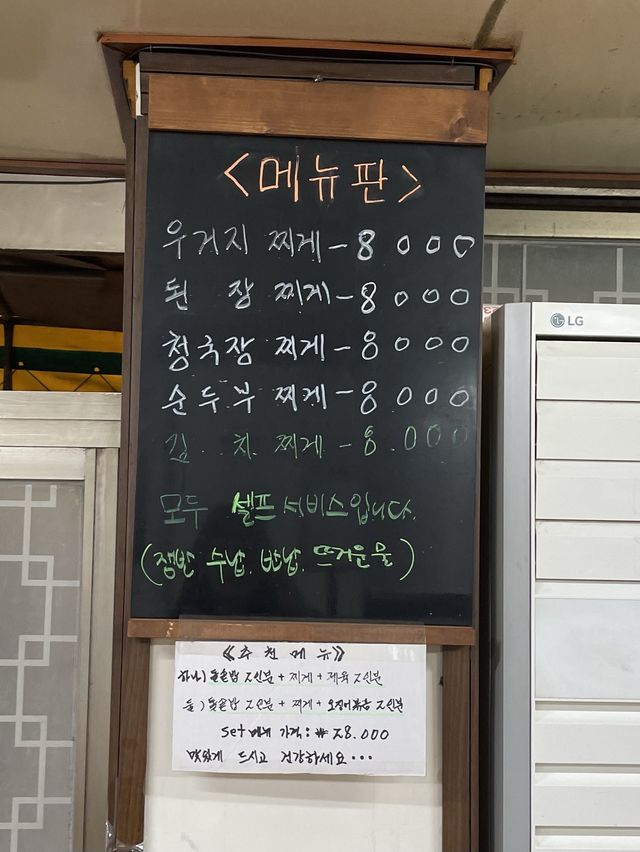 <메뉴판>
우거지 찌게 - 8000
된 장 찌게 - 8000
청국장 찌게 - 8000
순두부 찌게 - 8000
김 치 찌게 - 8.000
모두 셀프 서비스입니다.
(쟁반 수납. 반납. 뜨거운물)
LG
《추천메뉴》
하나) 돌솥밥 2인분 + 찌게 + 제육 2인분
둘) 돌솥밥 2인분 + 찌게 + 오징어볶음 2인분
set 가격: ₩ 28.000
맛있게 드시고 건강하세요...